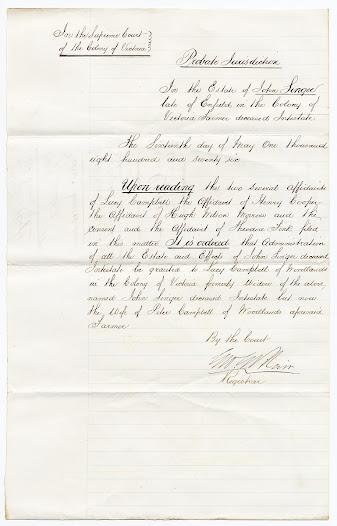 In the Supreme Court
of the Colony of Victoria
Probate Jurisdiction
In the Estate of John Singer
late of Enfield in the Colony of
Victoria Farmer deceased Intestate.
The Sixteenth day of May One thousand
eight hundred and seventy six
Upon reading the two several affidavits
of Lucy Campbell the Affidavit of Henry Cooper
the Affidavit of Hugh Wilson and the
consent and the Affidavit of Theodore Fink filed
in this matter It is ordered that Administration
of all the Estate and Effects of John Singer deceased
Intestate be granted to Lucy Campbell of Woodlands
in the Colony of Victoria formerly Widow of the above
named John Singer deceased Intestate but now
the Wife of Peter Campbell of Woodlands aforesaid
Farmer
By the Court
Registrar